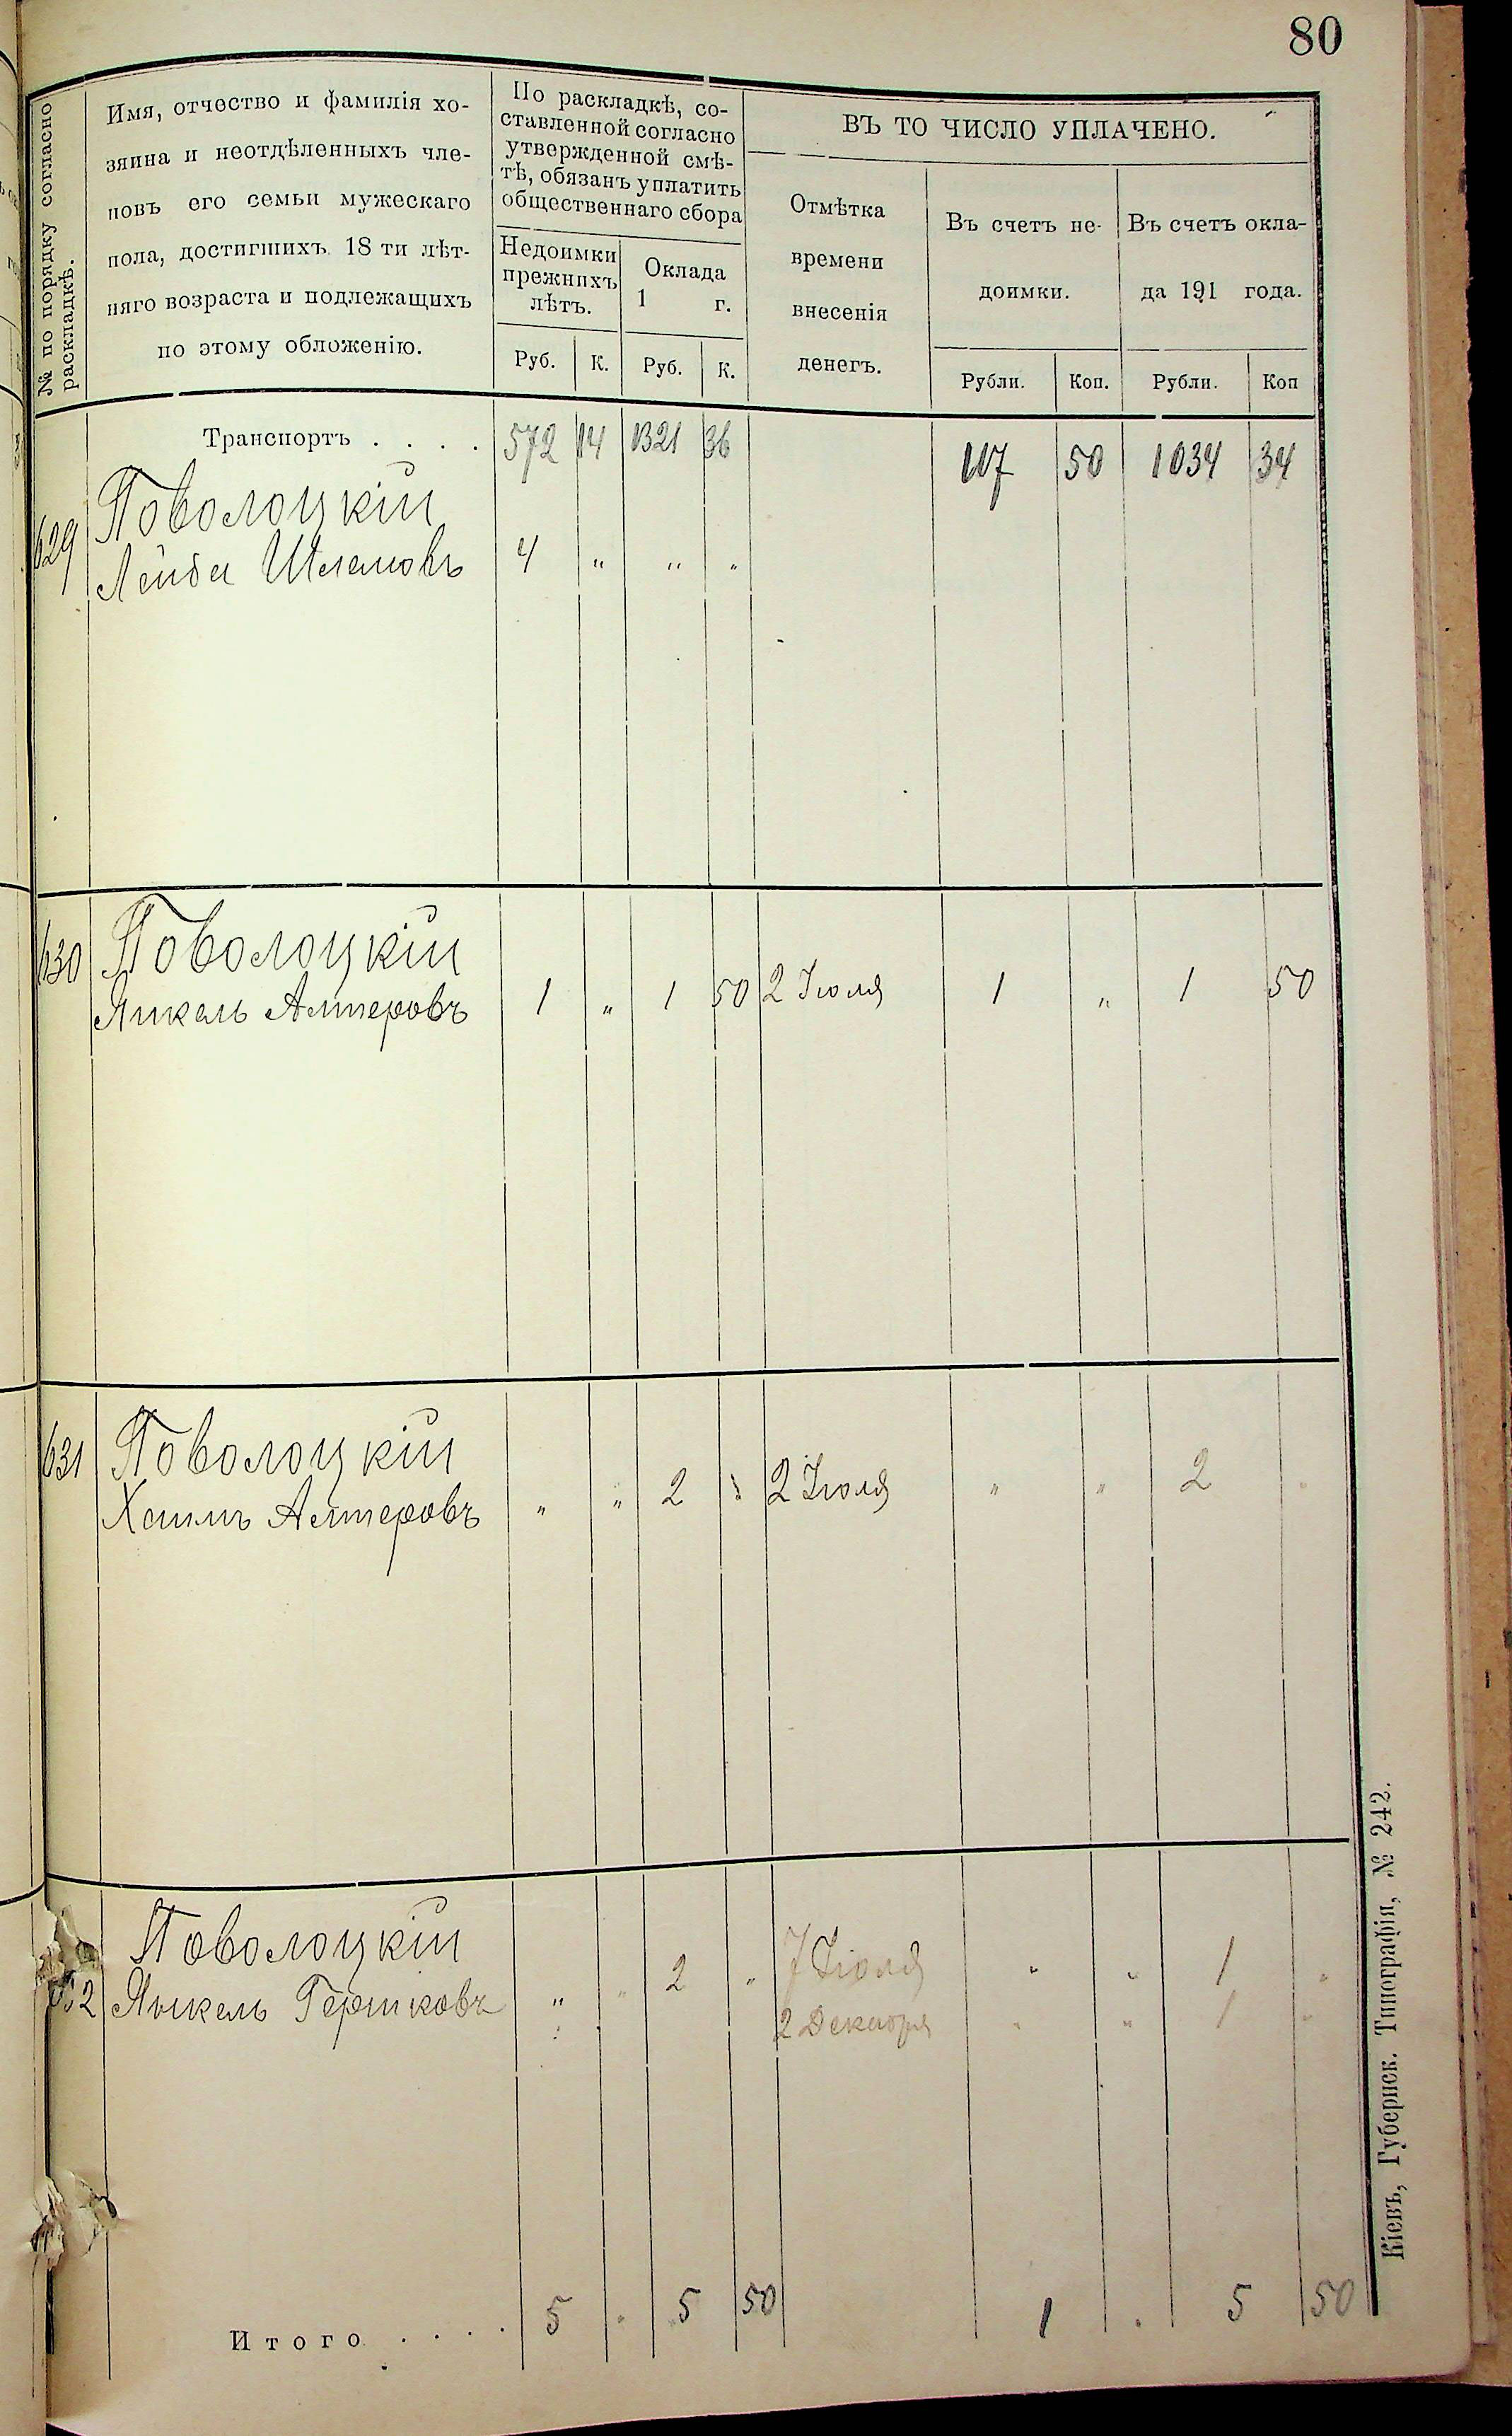 80
№ по порядку согласно
раскладкѣ.
Имя, отчество и фамилія хо-
зяина и неотдѣленныхъ чле-
новъ его семьи мужескаго
пола, достигшихъ 18 ти лѣт-
няго возраста и подлежащихъ
по этому обложенію.
По раскладкѣ, со-
ставленной согласно
утвержденной смѣ-
тѣ, обязанъ уплатить
общественнаго сбора
Недоимки
прежнихъ
лѣтъ.
Оклада
1 г.
Руб. К. Руб. К.
ВЪ ТО ЧИСЛО УПЛАЧЕНО.
Отмѣтка
времени
внесенія
денегъ.
Въ счетъ не-
доимки.
Въ счетъ окла-
да 191 года.
Рубли. Коп. Рубли. Коп
Транспортъ . . . . 572 14 1321 36 107 50 1034 34
Поволоцкій
629 Лейба Шлемовъ 4 " " "
Поволоцкій
630 Янкель Алтеровъ 1 " 1 50 2 Іюля 1 " 1 50
Поволоцкій
631 Хаимъ Алтеровъ " " 2 " 2 Іюля " " 2 "
Поволоцкій
632 Янкель Гершковъ " " 2 " 7 Іюля " " 1 "
2 Декабря " " 1 "
Итого . . . . 5 " 5 50 1 " 5 50
Кіевъ, Губернск. Типографія, № 242.